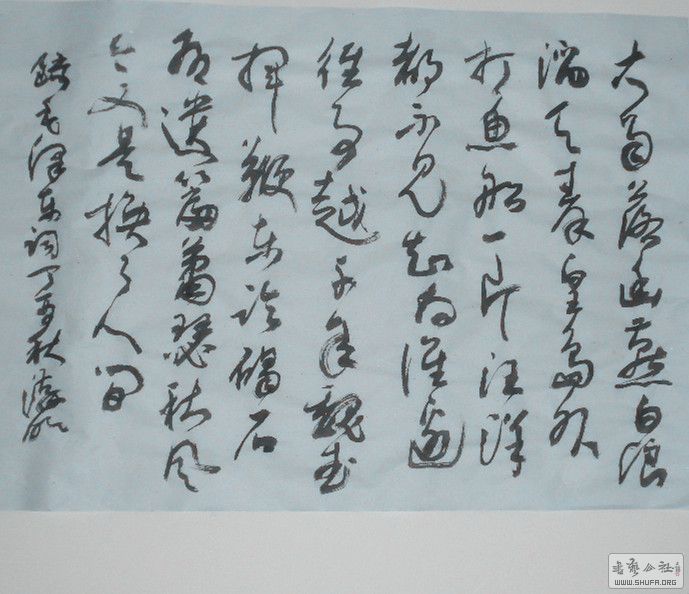 大雨落幽燕白浪
滔天秦皇島外
打魚船一片汪洋
都不見知向誰邊
往事越千年魏武
揮鞭東临碣石
有遺篇蕭瑟秋风
今又是換了人间
錄毛泽东词丁秋
書藝公社
WWW.SHUFA.ORG